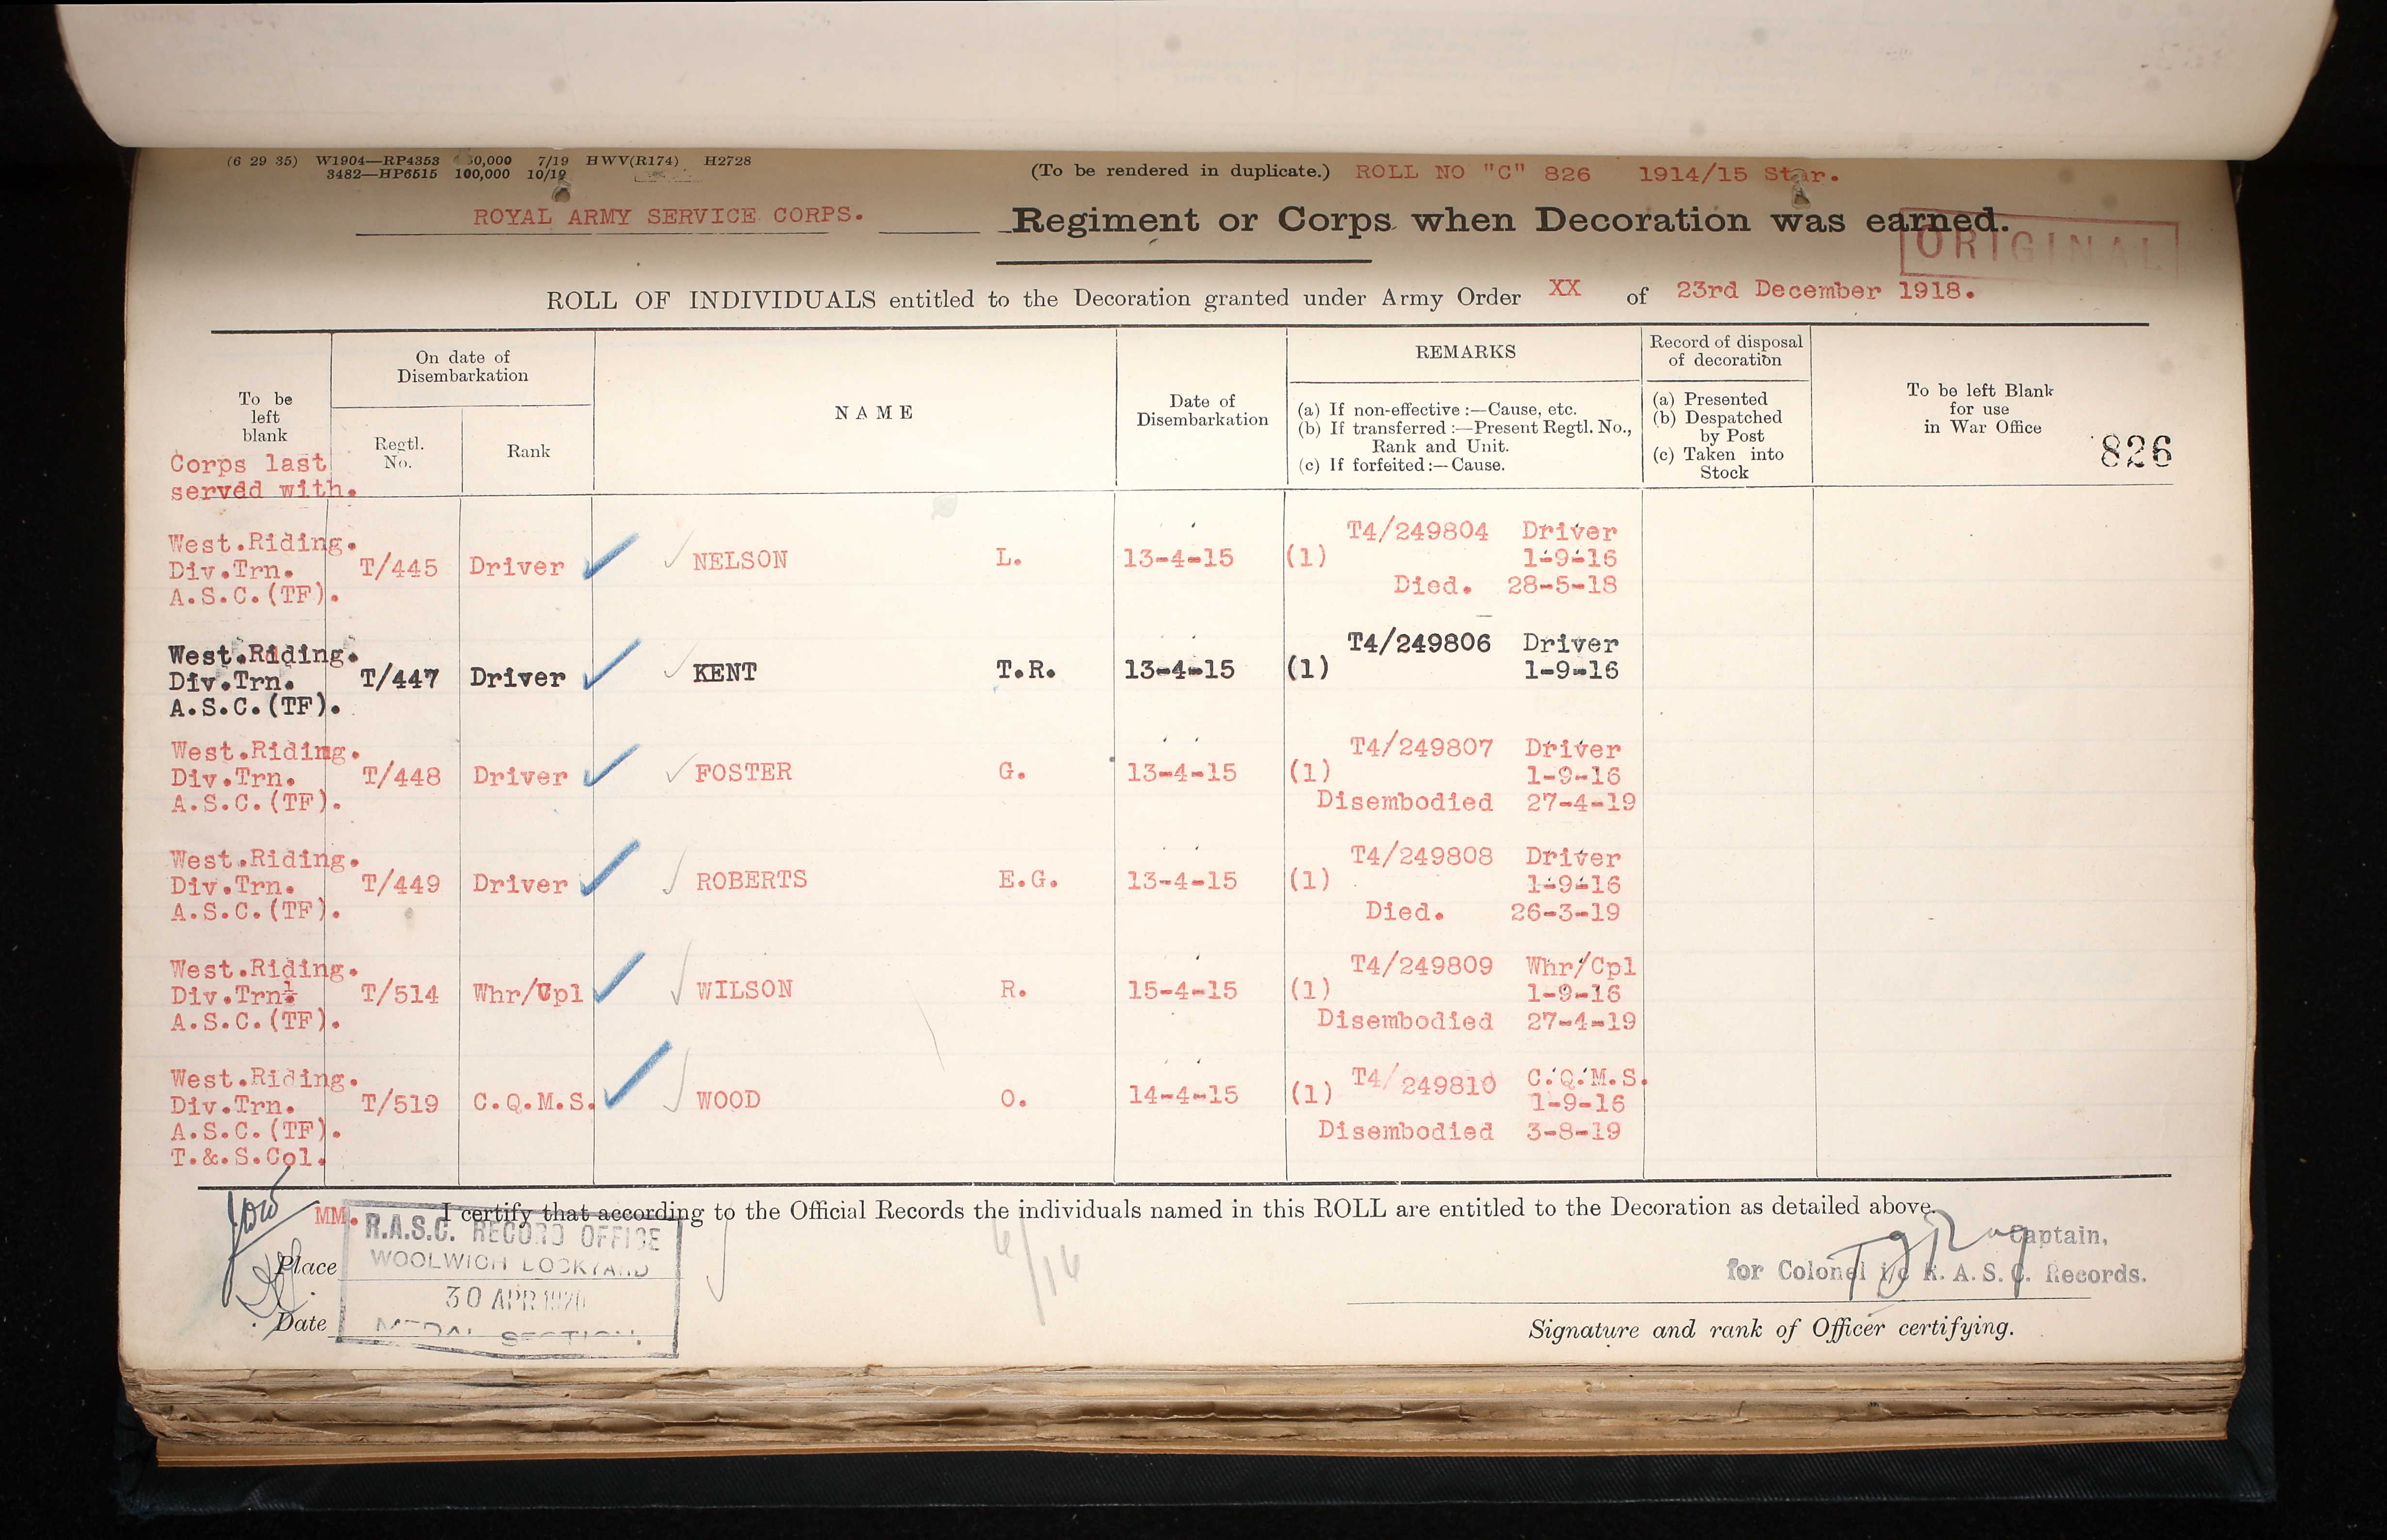 (6 29 35) W1904—RP4353 50,000 7/19 HWV(R174) H2728
3482—HP6515 100,000 10/19
(To be rendered in duplicate.) ROLL NO "C" 826 1914/15 Star.
ROYAL ARMY SERVICE CORPS. Regiment or Corps when Decoration was earned.
ORIGINAL
ROLL OF INDIVIDUALS entitled to the Decoration granted under Army Order XX of 23rd December 1918.
To be
left
blank
Corps last
served with.
On date of
Disembarkation
Regtl.
No.
Rank
NAME
Date of
Disembarkation
REMARKS
(a) If non-effective :—Cause, etc.
(b) If transferred :—Present Regtl. No.,
Rank and Unit.
(c) If forfeited:—Cause.
Record of disposal
of decoration
(a) Presented
(b) Despatched
by Post
(c) Taken into
Stock
To be left Blank
for use
in War Office
826
T4/249804 Driver
West.Riding.
Div.Trn. T/445 Driver NELSON L. 13-4-15 (1) 1-9-16
A.S.C.(TF). Died. 28-5-18
T4/249806 Driver
West.Riding.
Div.Trn. T/447 Driver KENT T.R. 13-4-15 (1) 1-9-16
A.S.C.(TF).
West.Riding. T4/249807 Driver
Div.Trn. T/448 Driver FOSTER G. 13-4-15 (1) 1-9-16
A.S.C.(TF). Disembodied 27-4-19
West.Riding. T4/249808 Driver
Div.Trn. T/449 Driver ROBERTS E.G. 13-4-15 (1) 1-9-16
A.S.C.(TF). Died. 26-3-19
West.Riding. T4/249809 Whr/Cpl
Div.Trn. T/514 Whr/Cpl WILSON R. 15-4-15 (1) 1-9-16
A.S.C.(TF). Disembodied 27-4-19
West.Riding. T4/249810 C.Q.M.S.
Div.Trn. T/519 C.Q.M.S. WOOD O. 14-4-15 (1) 1-9-16
A.S.C.(TF). Disembodied 3-8-19
T.&.S.Col.
MM. I certify that according to the Official Records the individuals named in this ROLL are entitled to the Decoration as detailed above.
R.A.S.C. RECORD OFFICE
WOOLWICH DOCKYARD
30 APR 1920
MEDAL SECTION.
Place
Date
6/16
Captain,
for Colonel i/c R.A.S.C. Records.
Signature and rank of Officer certifying.